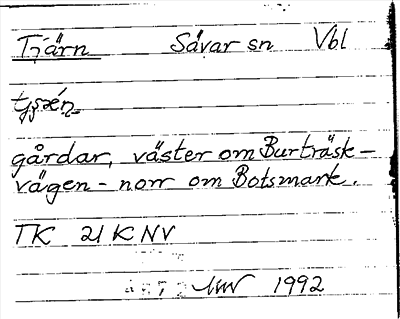 Tjärn Sävar sn Vbl
gårdar, väster om Burträsk-
vägen - norr om Botsmark.
TK 21 K NV
1992